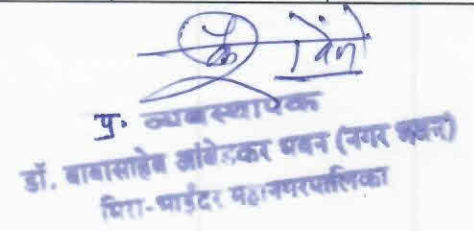 प्र. व्यवस्थापक
डॉ. बाबासाहेब आंबेडकर भवन (नगर भवन)
मिरा-भाईंदर महानगरपालिका